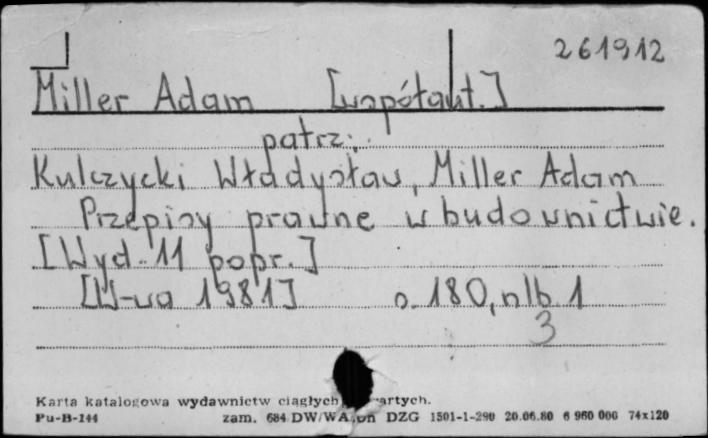 261912
Miller Adam [współaut.]
patrz:
Kulczycki Władysław, Miller Adam
Przepisy prawne w budownictwie.
[Wyd. 11 popr.]
[W-wa 1981] s. 180, nlb 1
3
Karta katalogowa wydawnictw ciągłych
Pu-B-144 zam. 684 DW/WA DZG 1501-1-290 20.06.80 6 960 000 74x120